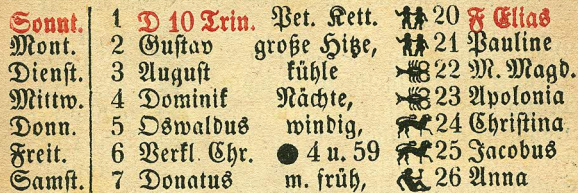 Sonnt. 1 D 10 Trin. Pet. Kett. 20 F Elias
Mont. 2 Gustav große Hitze, 21 Pauline
Dienst. 3 August kühle 22 M. Magd.
Mittw. 4 Dominik Nächte, 23 Apolonia
Donn. 5 Oswaldus windig, 24 Christina
Freit. 6 Verkl Chr. 4 u. 59 25 Jacobus
Samst. 7 Donatus m. früh, 26 Anna